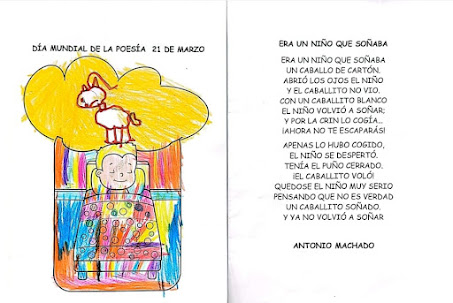 DÍA MUNDIAL DE LA POESÍA 21 DE MARZO
ERA UN NIÑO QUE SOÑABA
ERA UN NIÑO QUE SOÑABA
UN CABALLO DE CARTÓN.
ABRIÓ LOS OJOS EL NIÑO
Y EL CABALLITO NO VIO.
CON UN CABALLITO BLANCO
EL NIÑO VOLVIÓ A SOÑAR;
Y POR LA CRIN LO COGÍA...
¡AHORA NO TE ESCAPARÁS!
APENAS LO HUBO COGIDO,
EL NIÑO SE DESPERTÓ.
TENÍA EL PUÑO CERRADO.
¡EL CABALLITO VOLÓ!
QUEDOSE EL NIÑO MUY SERIO
PENSANDO QUE NO ES VERDAD
UN CABALLITO SOÑADO.
Y YA NO VOLVIÓ A SOÑAR
ANTONIO MACHADO